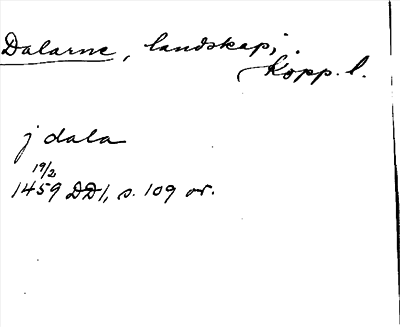 Dalarne, landskap;
Kopp. l.
j dala
19/2
1459 DD1, s. 109 or.